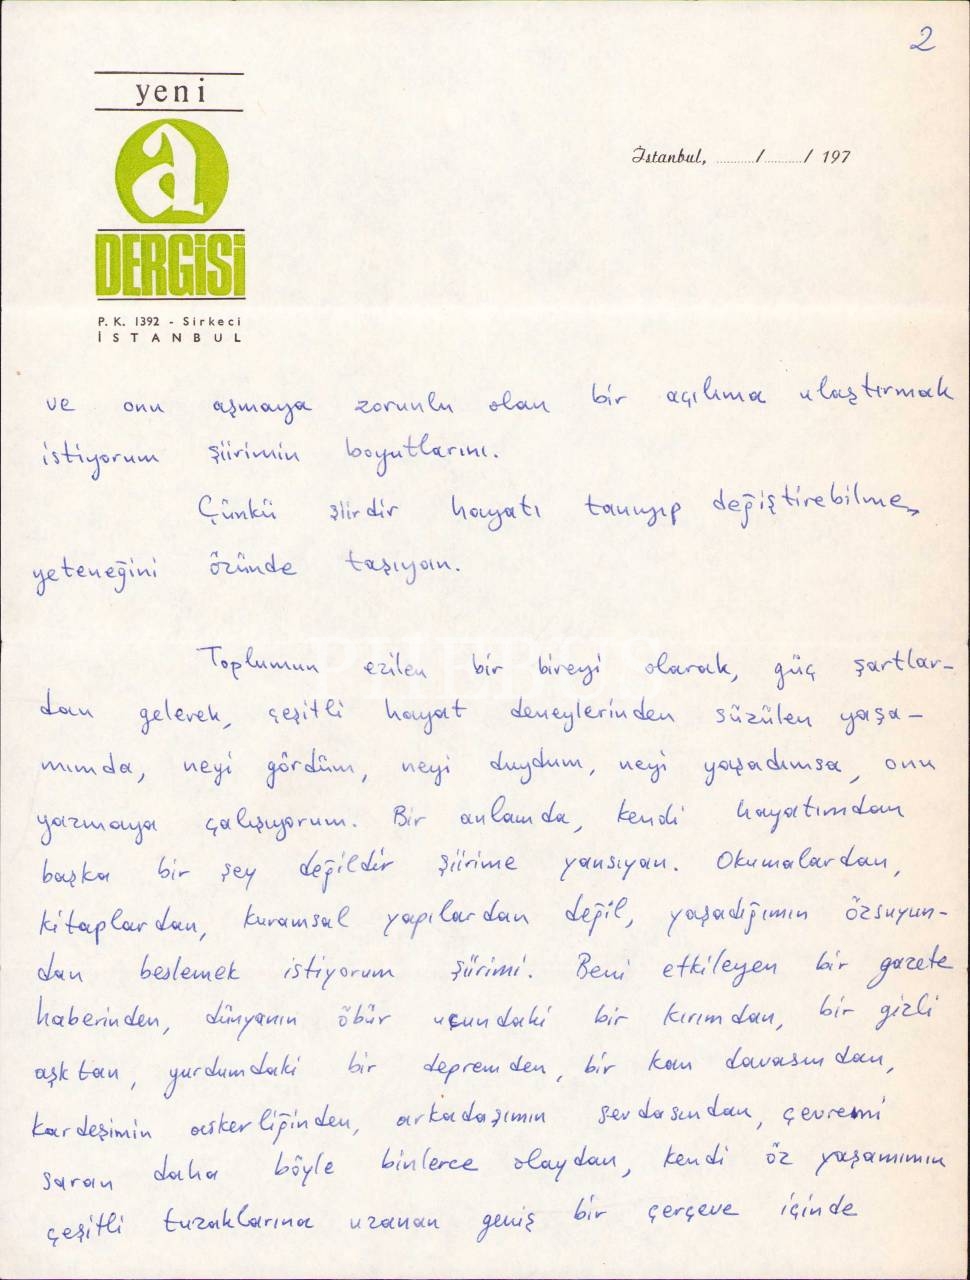 2
yeni
a
DERGİSİ
P. K. 1392 - Sirkeci
İSTANBUL
İstanbul, ........./........./ 197
ve onu aşmaya zorunlu olan bir açılıma ulaştırmak
istiyorum şiirimin boyutlarını.
Çünkü şiirdir hayatı tanıyıp değiştirebilme
yeteneğini özünde taşıyan.
Toplumun ezilen bir bireyi olarak, güç şartlar-
dan gelerek, çeşitli hayat deneylerinden süzülen yaşa-
mımda, neyi gördüm, neyi duydum, neyi yaşadımsa, onu
yazmaya çalışıyorum. Bir anlamda, kendi hayatımdan
başka bir şey değildir şiirime yansıyan. Okumalardan,
kitaplardan, kuramsal yapılardan değil, yaşadığımın özsuyun-
dan beslemek istiyorum şiirimi. Beni etkileyen bir gazete
haberinden, dünyanın öbür ucundaki bir kırımdan, bir gizli
aşktan, yurdumdaki bir depremden, bir kan davasından,
kardeşimin askerliğinden, arkadaşımın sevdasından, çevremi
saran daha böyle binlerce olaydan, kendi öz yaşamımın
çeşitli tuzaklarına uzanan geniş bir çerçeve içinde